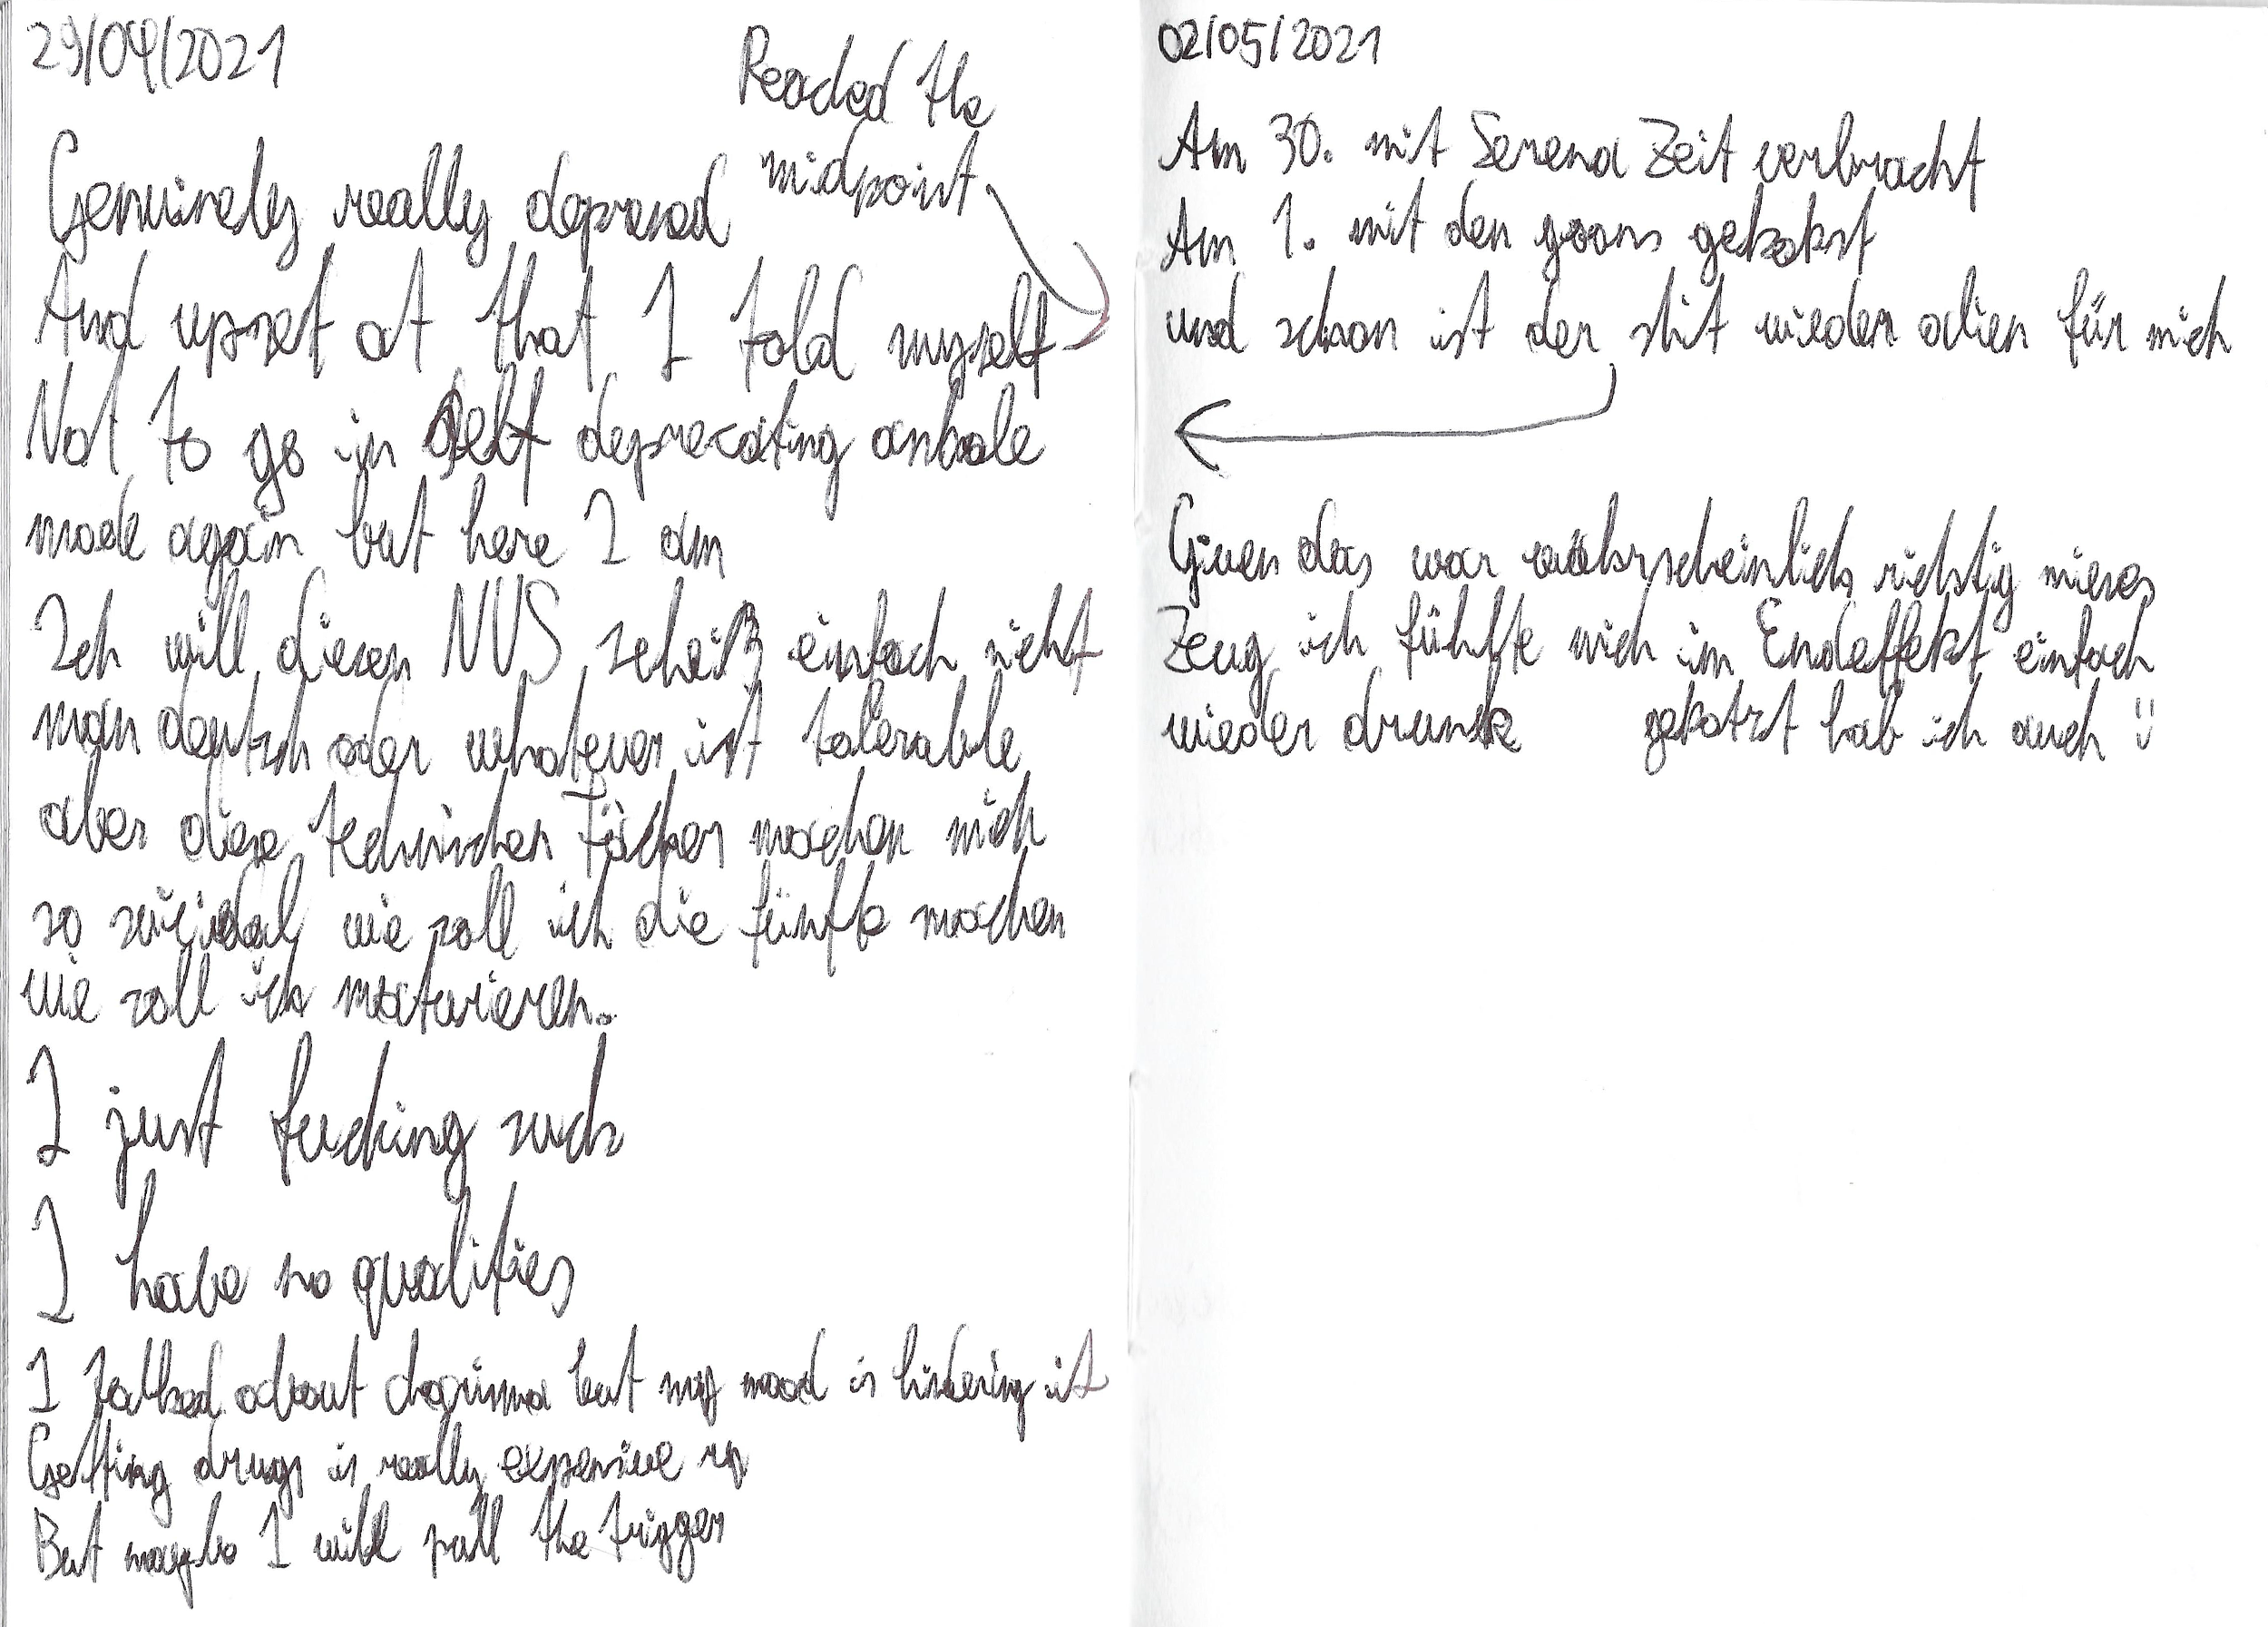 29/04/2021
Reached the
midpoint
Genuinely really depressed
And upset at that I told myself
Not to go in self deprecating asshole
mode again but here I am
Ich will diesen NVS scheiß einfach nicht
man deutsch oder whatever ist tolerable
aber diese technischen Fächer machen mich
so suicidal wie soll ich die fünfte machen
wie soll ich maturieren.
I just fucking suck
I have no qualities
I talked about but my mood is hindering it
Getting drugs is really expensive rn
But maybe I will pull the trigger
02/05/2021
Am 30. mit Serena Zeit verbracht
Am 1. mit den goons gekokst
und schon ist der shit wieder alien für mich
Given das war wahrscheinlich richtig mieses
Zeug ich fühlte mich im Endeffekt einfach
wieder drunk gekotzt hab ich auch !!